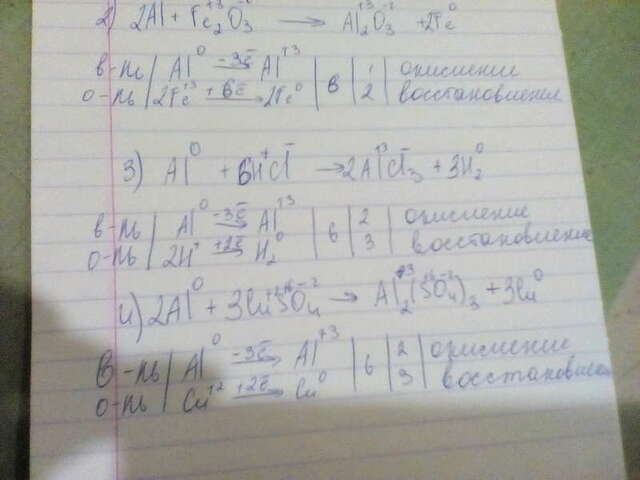 2) 2Al + Fe₂⁺³O₃⁻² → Al₂⁺³O₃⁻² + 2Fe⁰
в-ль | Al⁰ —-3ē→ Al⁺³ | 6 | 1 | окисление
о-ль | 2Fe⁺³ —+6ē→ 2Fe⁰ | | 2 | восстановление
3) Al⁰ + 6H⁺Cl⁻ → 2Al⁺³Cl₃⁻ + 3H₂⁰
в-ль | Al⁰ —-3ē→ Al⁺³ | 6 | 2 | окисление
о-ль | 2H⁺ —+2ē→ H₂⁰ | | 3 | восстановление
4) 2Al⁰ + 3Cu⁺²S⁺⁶O₄⁻² → Al₂⁺³(S⁺⁶O₄⁻²)₃ + 3Cu⁰
в-ль | Al⁰ —-3ē→ Al⁺³ | 6 | 2 | окисление
о-ль | Cu⁺² —+2ē→ Cu⁰ | | 3 | восстановлен